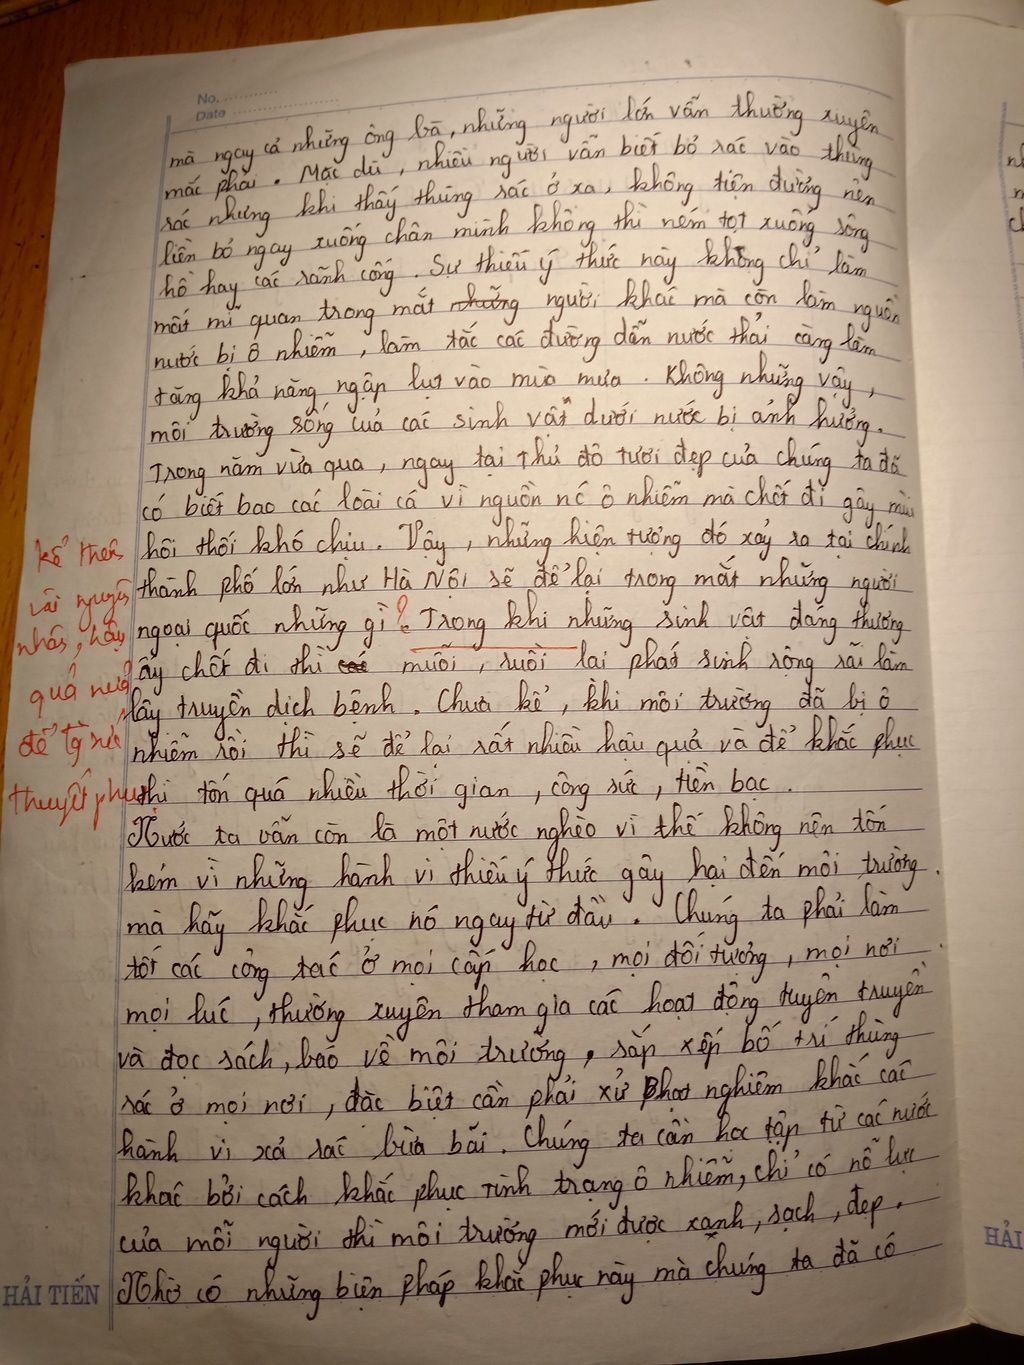 No. ............
Date ......................
mà ngay cả những ông bà, những người lớn vẫn thường xuyên
mắc phải. Mặc dù, nhiều người vẫn biết bỏ rác vào thùng
rác nhưng khi thấy thùng rác ở xa, không tiện đường nên
liền bỏ ngay xuống chân mình không thì ném tọt xuống sông
hồ hay các rãnh cống. Sự thiếu ý thức này không chỉ làm
mất mĩ quan trong mắt những người khác mà còn làm nguồn
nước bị ô nhiễm, làm tắc các đường dẫn nước thải càng làm
tăng khả năng ngập lụt vào mùa mưa. Không những vậy,
môi trường sống của các sinh vật dưới nước bị ảnh hưởng.
Trong năm vừa qua, ngay tại Thủ đô tươi đẹp của chúng ta đã
có biết bao các loài cá vì nguồn nc ô nhiễm mà chết đi gây mùi
hôi thối khó chịu. Vậy, những hiện tượng đó xảy ra tại chính
thành phố lớn như Hà Nội sẽ để lại trong mắt những người
ngoại quốc những gì? Trong khi những sinh vật đáng thương
ấy chết đi thì muỗi, ruồi lại phát sinh rộng rãi làm
lây truyền dịch bệnh. Chưa kể, khi môi trường đã bị ô
nhiễm rồi thì sẽ để lại rất nhiều hậu quả và để khắc phục
thì tốn quá nhiều thời gian, công sức, tiền bạc.
Nước ta vẫn còn là một nước nghèo vì thế không nên tốn
kém vì những hành vi thiếu ý thức gây hại đến môi trường.
mà hãy khắc phục nó ngay từ đầu. Chúng ta phải làm
tốt các công tác ở mọi cấp học, mọi đối tượng, mọi nơi
mọi lúc, thường xuyên tham gia các hoạt động tuyên truyền
và đọc sách, báo về môi trường, sắp xếp bố trí thùng
rác ở mọi nơi, đặc biệt cần phải xử phạt nghiêm khắc các
hành vi xả rác bừa bãi. Chúng ta cần học tập từ các nước
khác bởi cách khắc phục tình trạng ô nhiễm, chỉ có nỗ lực
của mỗi người thì môi trường mới được xanh, sạch, đẹp.
Nhờ có những biện pháp khắc phục này mà chúng ta đã có
kể thêm
vài nguyên
nhân, hậu
quả nữa
để
thuyết phục
HẢI TIẾN
HẢI